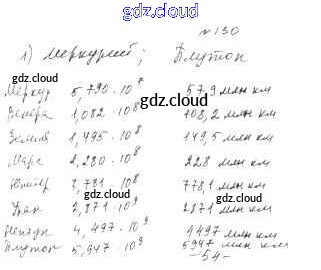 gdz.cloud
№ 130
1) Меркурий; Плутон
gdz.cloud
Меркур. 5,790 · 10⁷ 57,9 млн км
gdz.cloud
Венера 1,082 · 10⁸ 108,2 млн км
Земля 1,495 · 10⁸ 149,5 млн км
Марс 2,280 · 10⁸ 228 млн км
Юпитер 7,781 · 10⁸ 778,1 млн км
Уран 2,871 · 10⁹ 2871 млн км
gdz.cloud gdz.cloud
Нептун 4,497 · 10⁹ 4497 млн км
Плутон 5,947 · 10⁹ 5947 млн км
-54-